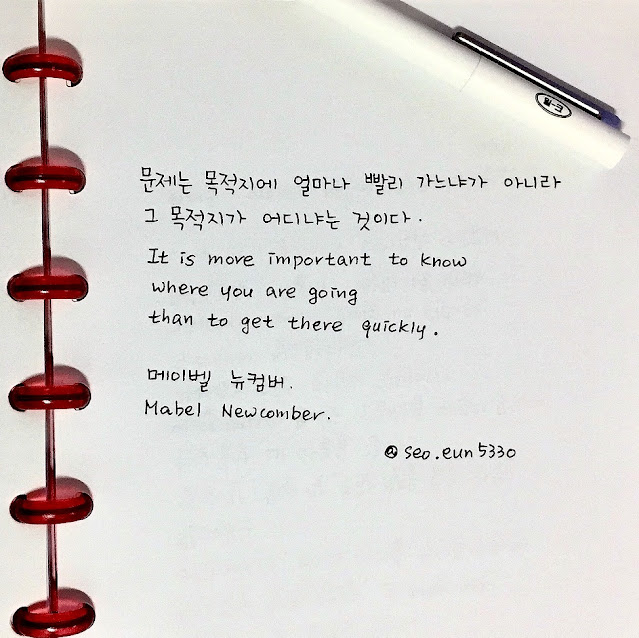 문제는 목적지에 얼마나 빨리 가느냐가 아니라
그 목적지가 어디냐는 것이다.
It is more important to know
where you are going
than to get there quickly.
메이벨 뉴컴버.
Mabel Newcomber.
@seo.eun5330